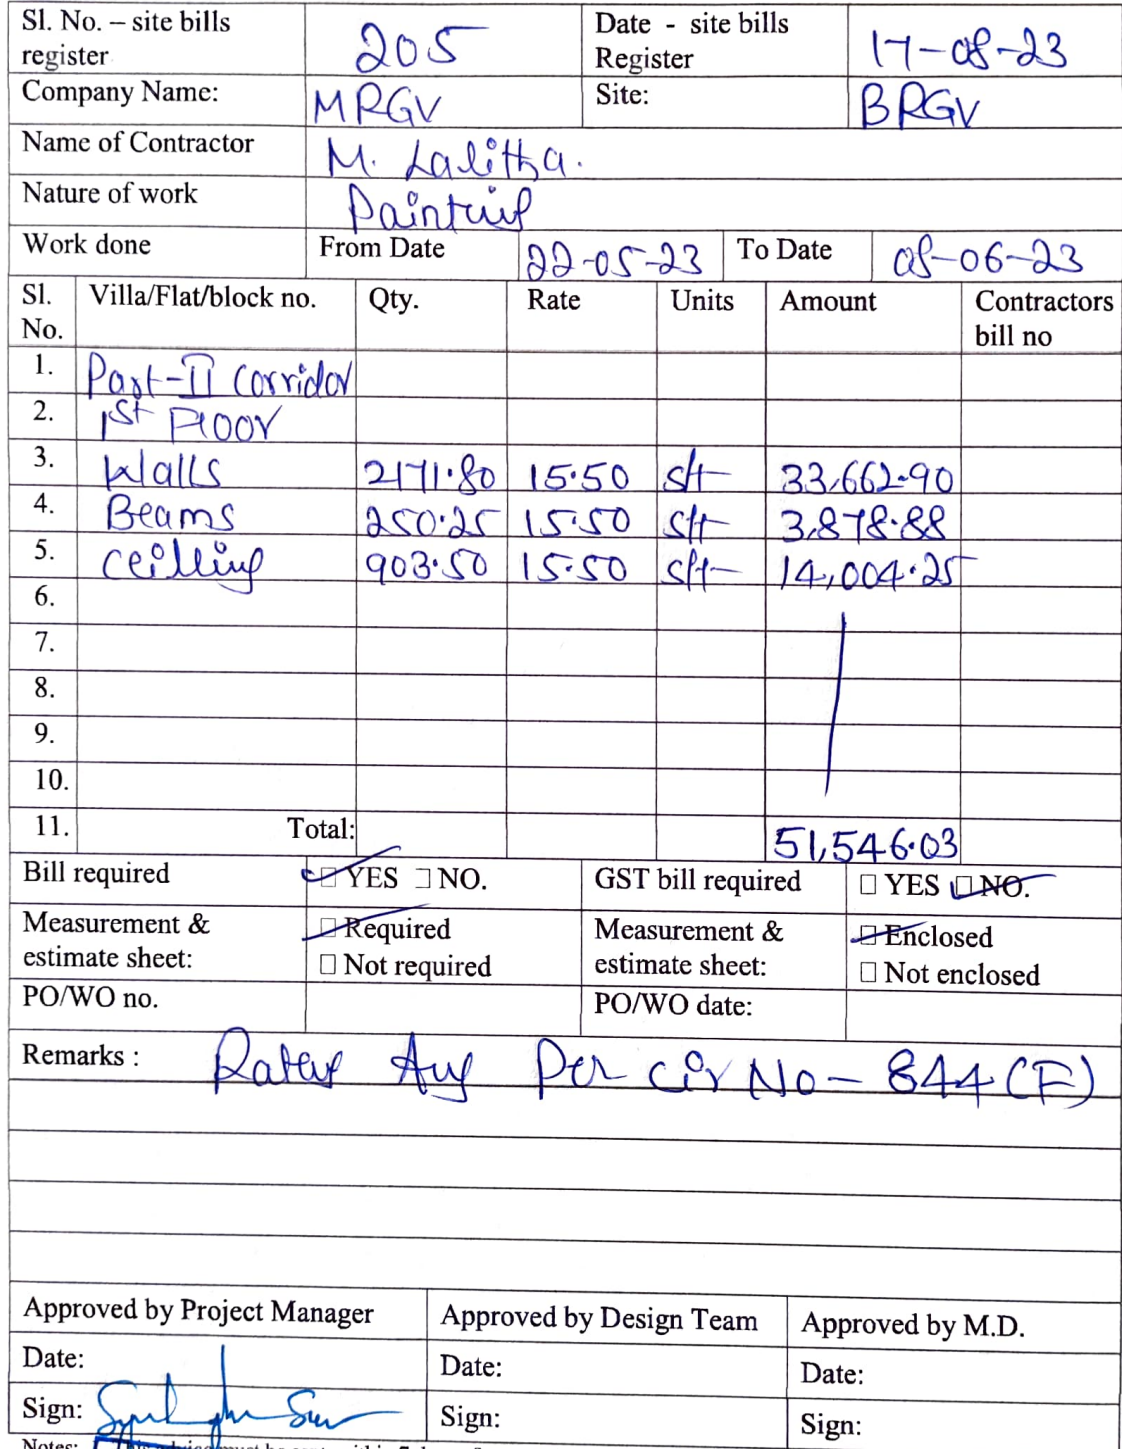 Sl. No. – site bills register 205 Date - site bills Register 17-08-23
Company Name: MRGV Site: BRGV
Name of Contractor M. Lalitha.
Nature of work Painting
Work done From Date 22-05-23 To Date 08-06-23
Sl. No. Villa/Flat/block no. Qty. Rate Units Amount Contractors bill no
1. Part-II Corridor
2. 1st Floor
3. Walls 2171.80 15.50 sft 33,662.90
4. Beams 250.25 15.50 sft 3,878.88
5. Ceilling 903.50 15.50 sft 14,004.25
6.
7.
8.
9.
10.
11. Total: 51,546.03
Bill required ☐ YES ☐ NO. GST bill required ☐ YES ☐ NO.
Measurement & estimate sheet: ☐ Required ☐ Not required Measurement & estimate sheet: ☐ Enclosed ☐ Not enclosed
PO/WO no. PO/WO date:
Remarks : Rates As Per Cir No - 844 (F)
Approved by Project Manager Approved by Design Team Approved by M.D.
Date: Date: Date:
Sign: Sign: Sign:
Notes: